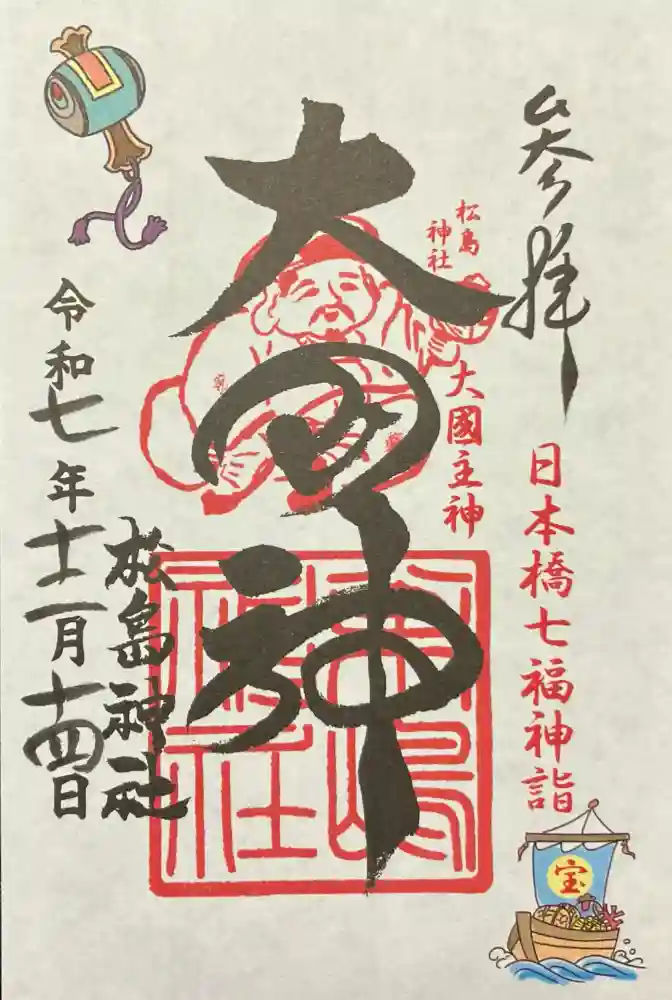 参拝
日本橋七福神詣
松島
神社
大國主神
大国神
松嶋
神社
松島神社
令和七年十二月十四日
宝